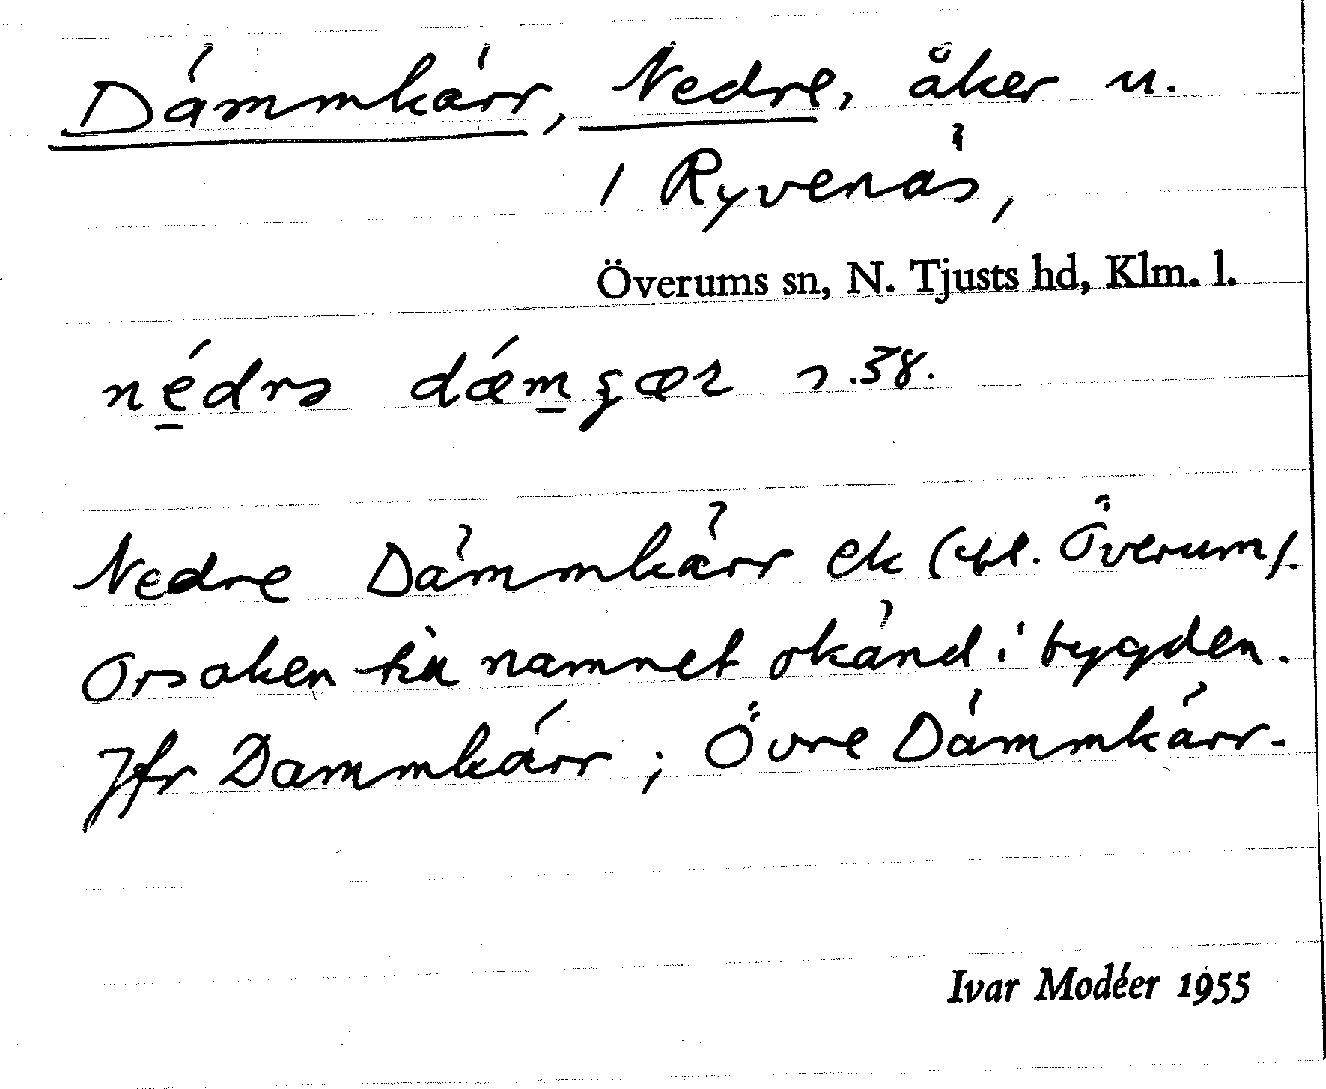 Dämmkärr, Nedre, åker u.
1 Ryvenäs,
Överums sn, N. Tjusts hd, Klm. l.
nédrə dǽmçær s.38.
Nedre Dämmkärr ek (bl. Överum).
Orsaken till namnet okänd i bygden.
Jfr Dammkärr; Övre Dämmkärr.
Ivar Modéer 1955